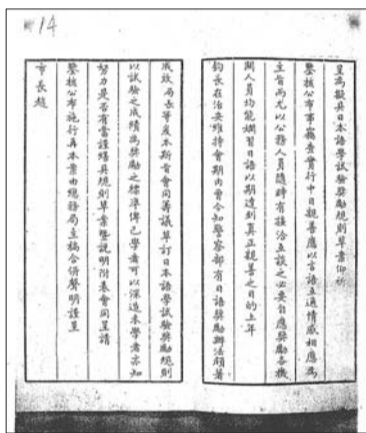 14
呈為擬具日本語學試驗獎勵規則草案仰祈
鑒核公布事竊查實行中日親善應以言語互通情感相應為
主旨而尤以公務人員隨時有接洽互談之必要自應獎勵各機
關人員均能嫻習日語以期達到真正親善之目的上年
鈞長在治安維持會期內曾令知警察部有日語獎勵辦法頗著
成效局長等爰本斯旨會同籌議草訂日本語學試驗獎勵規則
以試驗之成績為獎勵之標準俾已學者可以深造未學者亦知
努力是否有當謹繕具規則草案暨說明附表會同呈請
鑒核公布施行再本案由總務局主稿合併聲明謹呈
市長趙